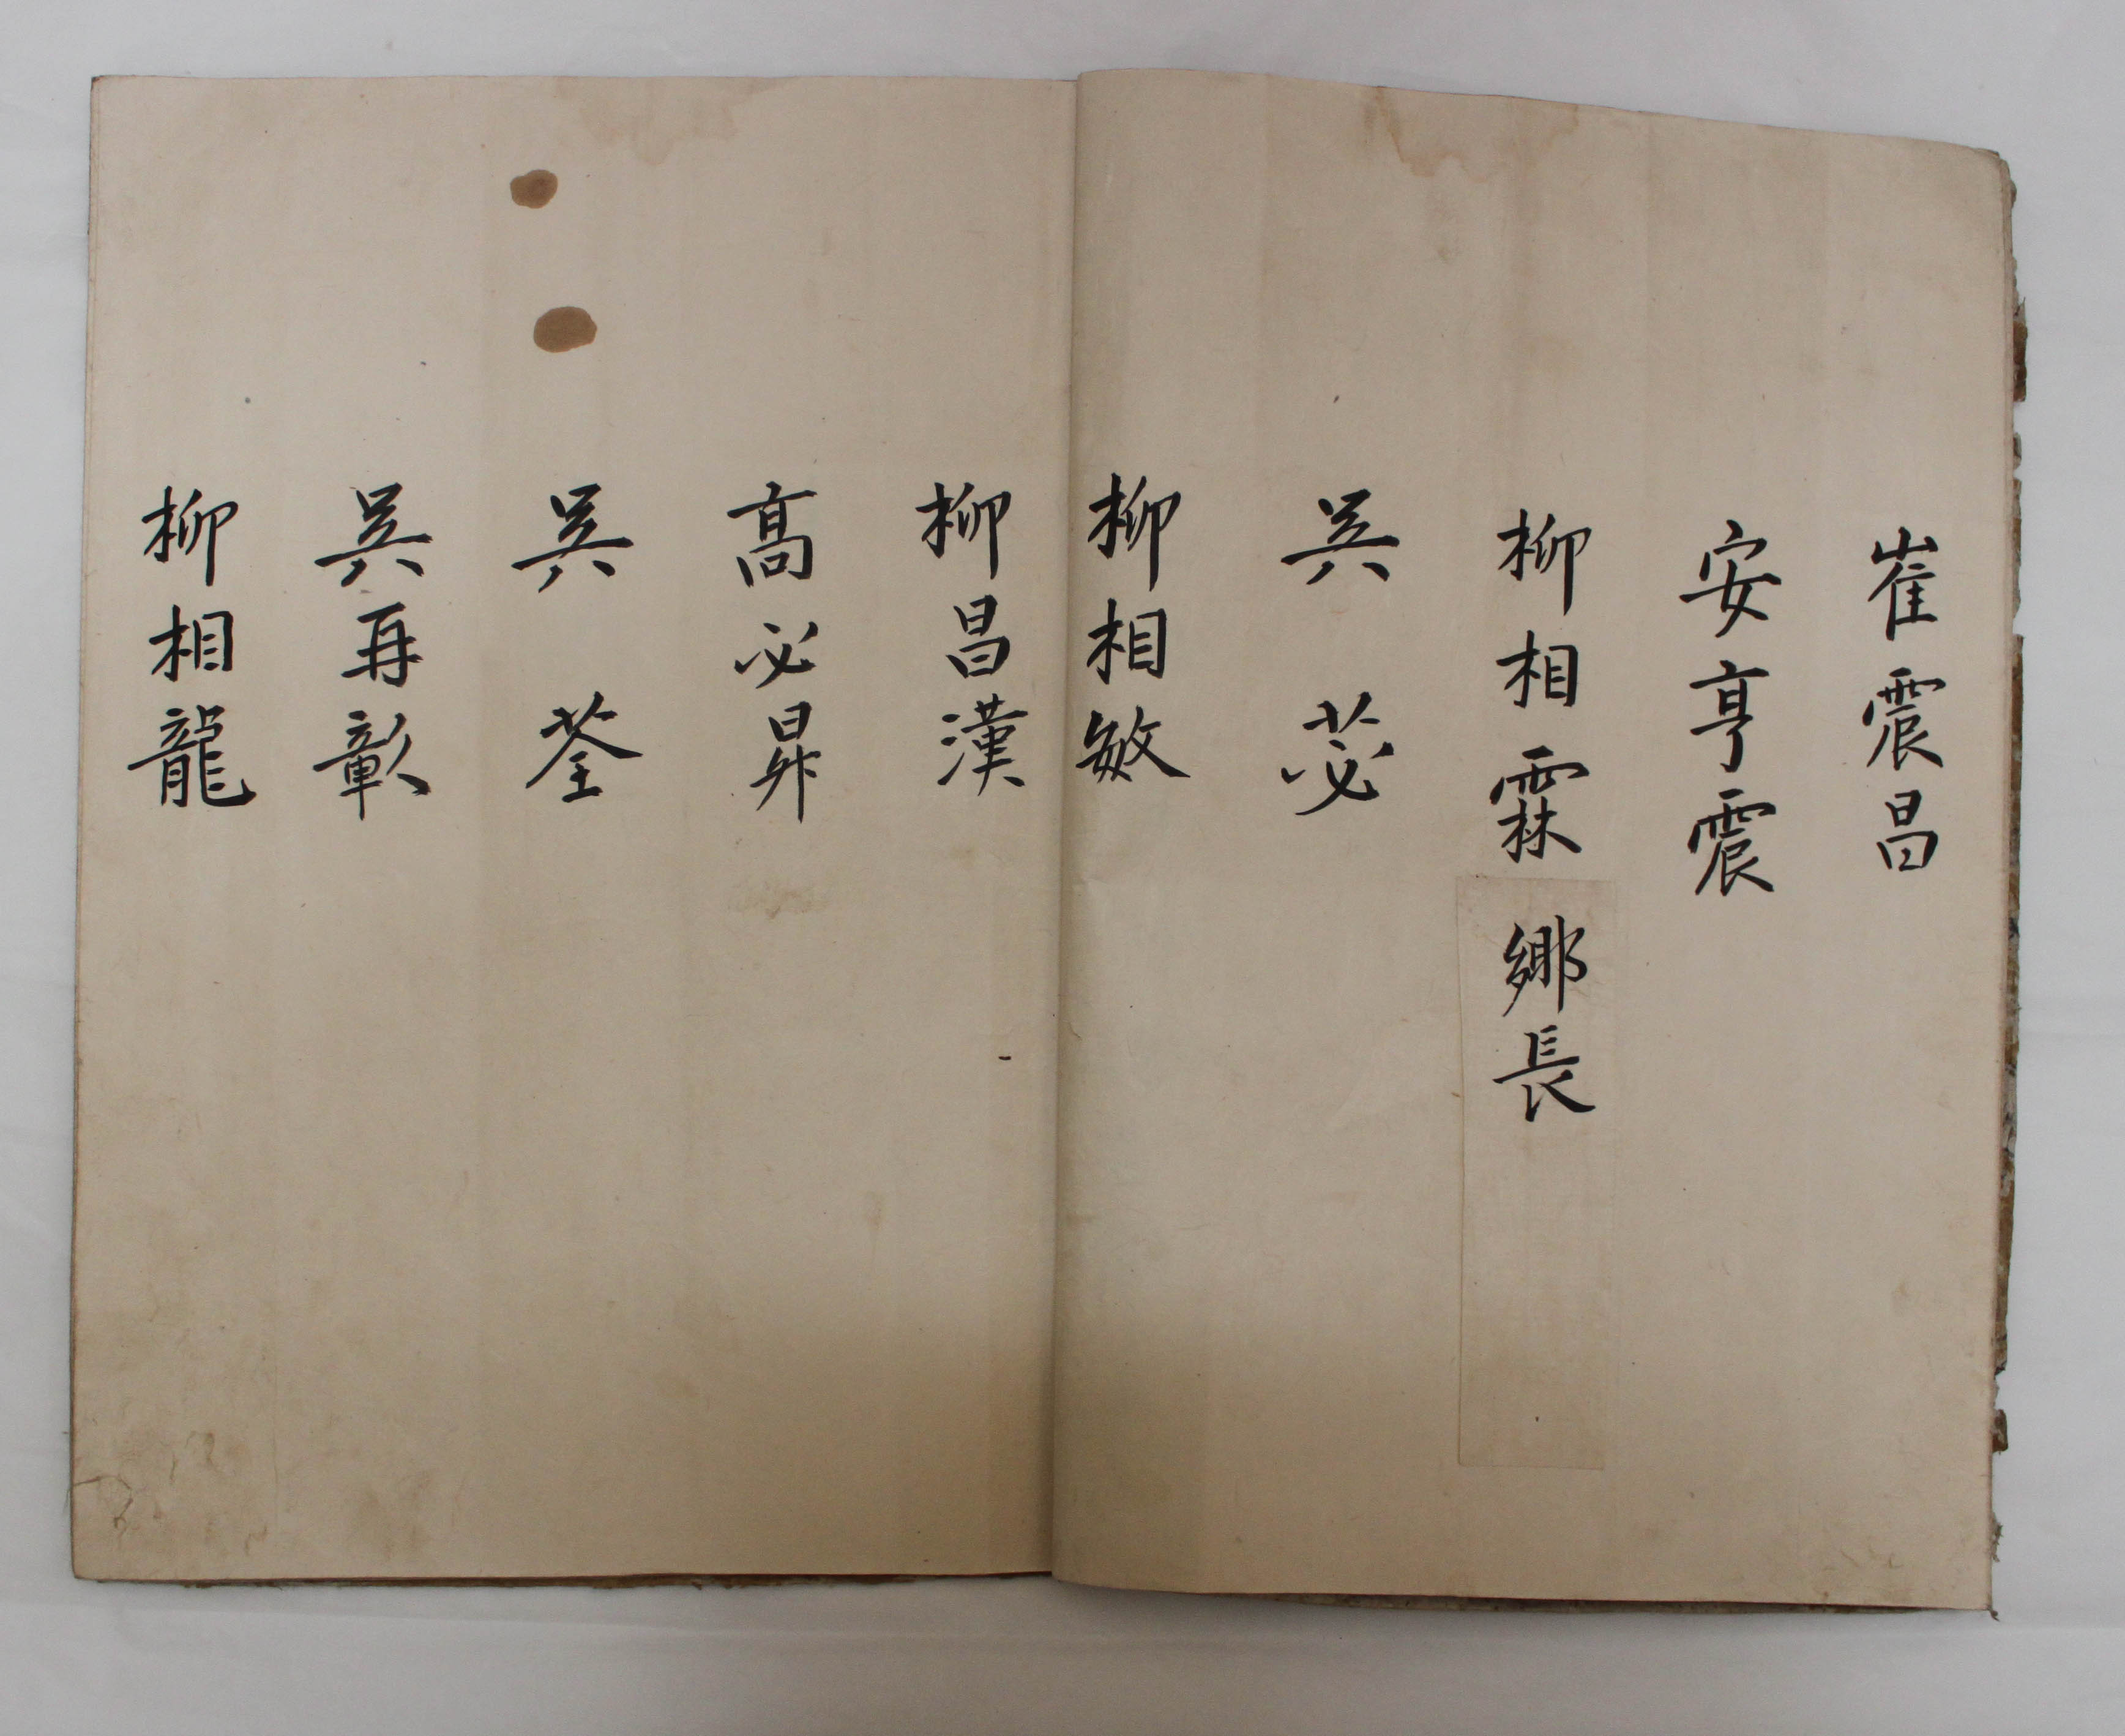 崔震昌
安亨震
柳相霖 鄕長
吳苾
柳相敏
柳昌漢
高必昇
吳荃
吳再彰
柳相龍